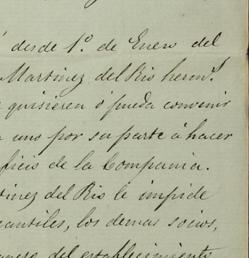 desde 1º de Enero del
Martinez del Rio herms
quisieren ó pueda convenir
uno por su parte á hacer
ficio de la Compania.
tinez del Rio le impide
cantiles, los demas socios,
del establecimiento